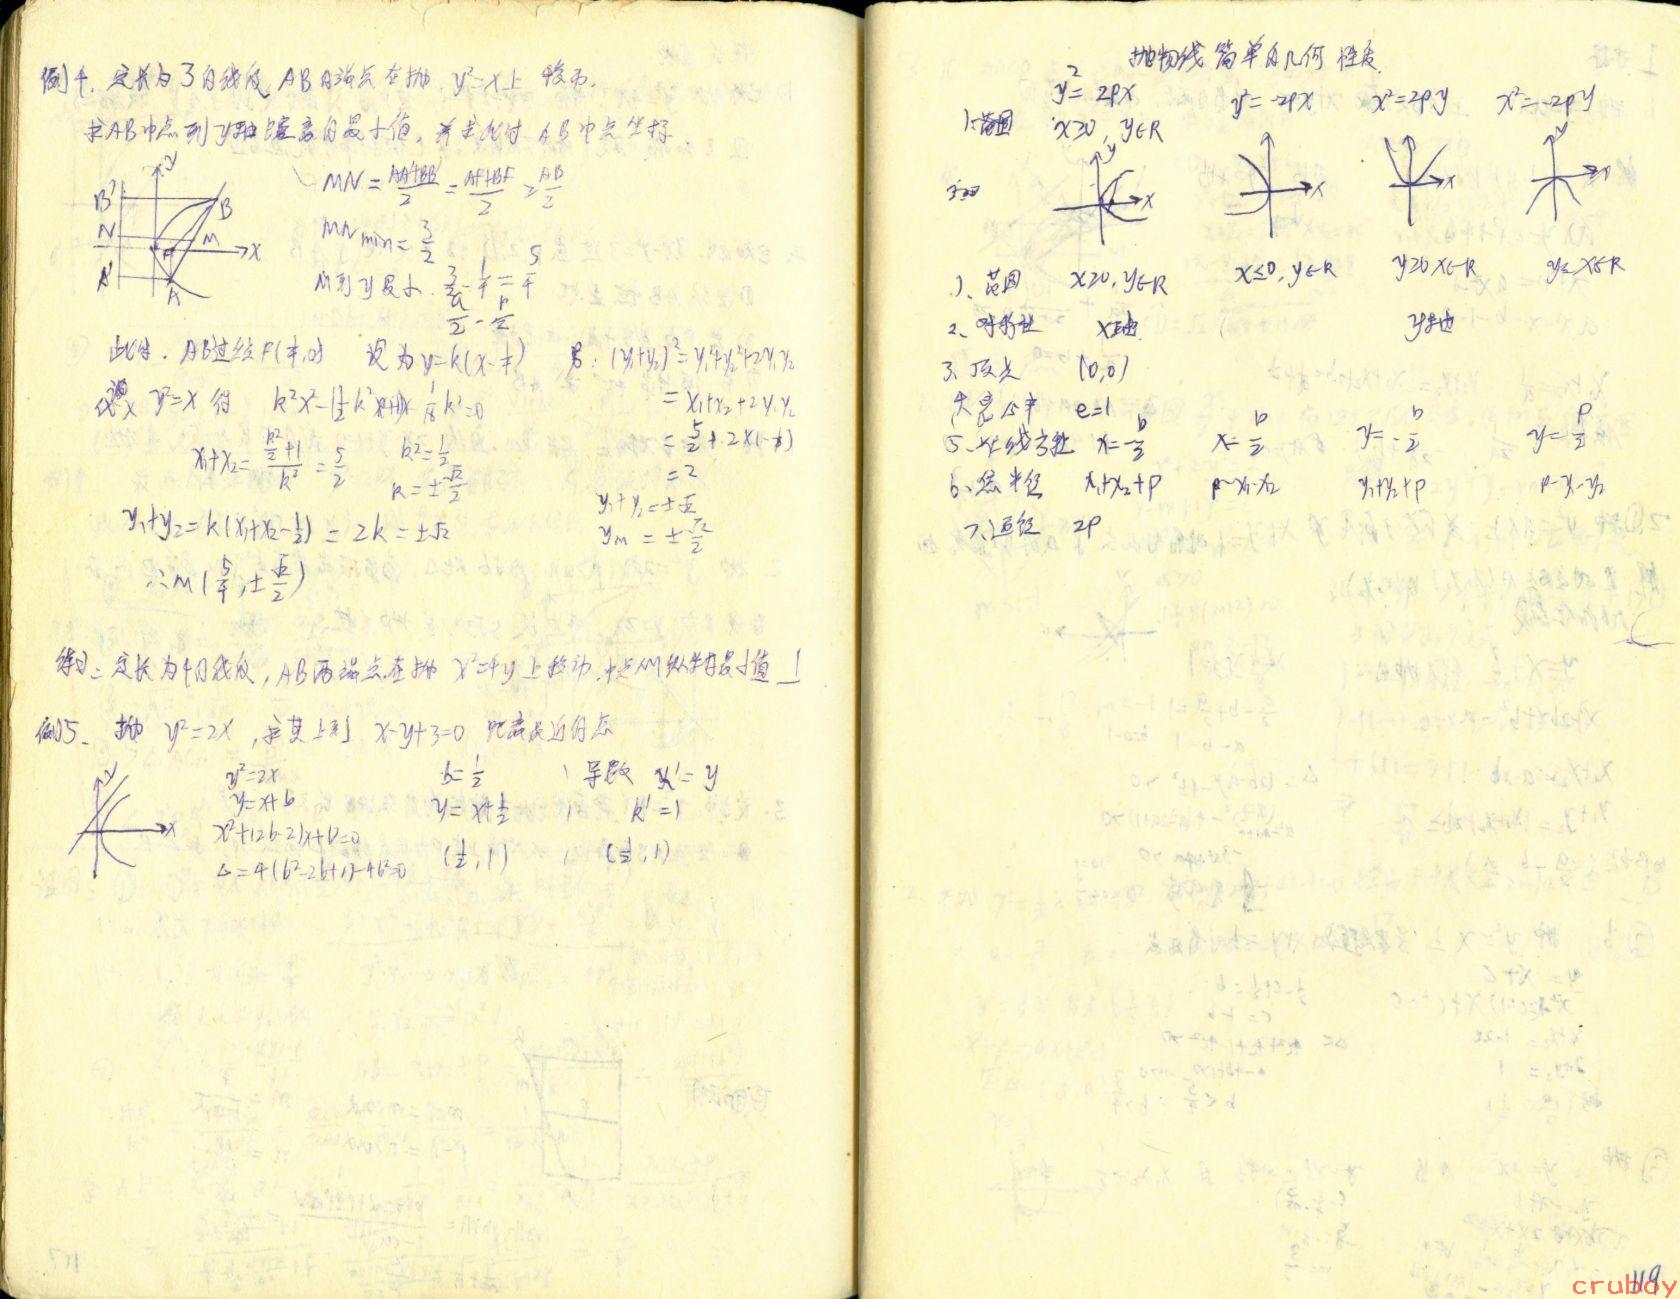 例4. 定长为3的线段AB两端点在抛 y²=x上移动.
求AB中点到y轴距离的最小值, 并求此时 AB中点坐标
MN = (AA'+BB')/2 = (AF+BF)/2 ≥ AB/2
MNmin = 3/2
M到y最小. 3/2 - 1/4 = 5/4
a/2 - p/2
y
B' B
N M
F x
A' A
此时. AB过焦F(1/4,0) 设为 y=k(x-1/4)
代入 y²=x 得 k²x²-(1/2k²+1)x+1/16k²=0
x₁+x₂= (k²/2+1)/k² = 5/2 k²=1/2
k=±√2/2
y₁+y₂=k(x₁+x₂-1/2) = 2k = ±√2
∴M(5/4, ±√2/2)
(y₁+y₂)²=y₁²+y₂²+2y₁y₂
= x₁+x₂+2y₁y₂
= 5/2+2×(-1/4)
=2
y₁+y₂=±√2
yM = ±√2/2
练习: 定长为4的线段, AB两端点在抛 x²=4y上移动.中点M纵坐标最小值 1
例5. 抛 y²=2x, 求其上到 x-y+3=0 距离最近的点
y
x
y²=2x
y=x+b
x²+(2b-2)x+b²=0
Δ=4(b²-2b+1)-4b²=0
b=1/2
y=x+1/2
(1/2,1)
导数 x'=y
k'=1
(1/2,1)
抛物线简单的几何性质
y²=2px y²=-2px x²=2py x²=-2py
1.范围 x≥0, y∈R
y
x x x x
1、范围 x≥0, y∈R x≤0, y∈R y≥0 x∈R y≤ x∈R
2、对称性 x轴 y轴
3、顶点 (0,0)
4离心率 e=1
5、准线方程 x=-p/2 x=p/2 y=-p/2 y=p/2
6、焦半径 x₁+x₂+p p-x₁-x₂ y₁+y₂+p p-y₁-y₂
7、通径 2p
119
cruboy